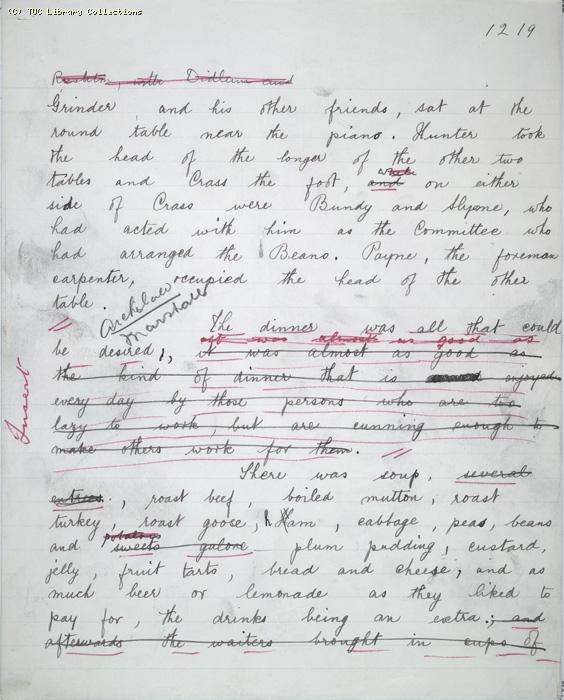 (C) TUC Library Collections
1219
Rushton, with Didlum and
Grinder and his other friends, sat at the
round table near the piano. Hunter took
the head of the longer of the other two
while
tables and Crass the foot, and on either
side of Crass were Bundy and Slyme, who
had acted with him as the Committee who
had arranged the Beano. Payne, the foreman
carpenter, occupied the head of the other
table.
The dinner was all that could
it was almost as good as
be desired; it was almost as good as
the kind of dinner that is enjoyed
every day by those persons who are too
lazy to work, but are cunning enough to
make others work for them.
Insert
There was soup, several
entrées, roast beef, boiled mutton, roast
turkey, roast goose, Ham, cabbage, peas, beans
potatoes
and sweets galore plum pudding, custard,
jelly, fruit tarts, bread and cheese, and as
much beer or lemonade as they liked to
pay for, the drinks being an extra; and
afterwards the waiters brought in cups of